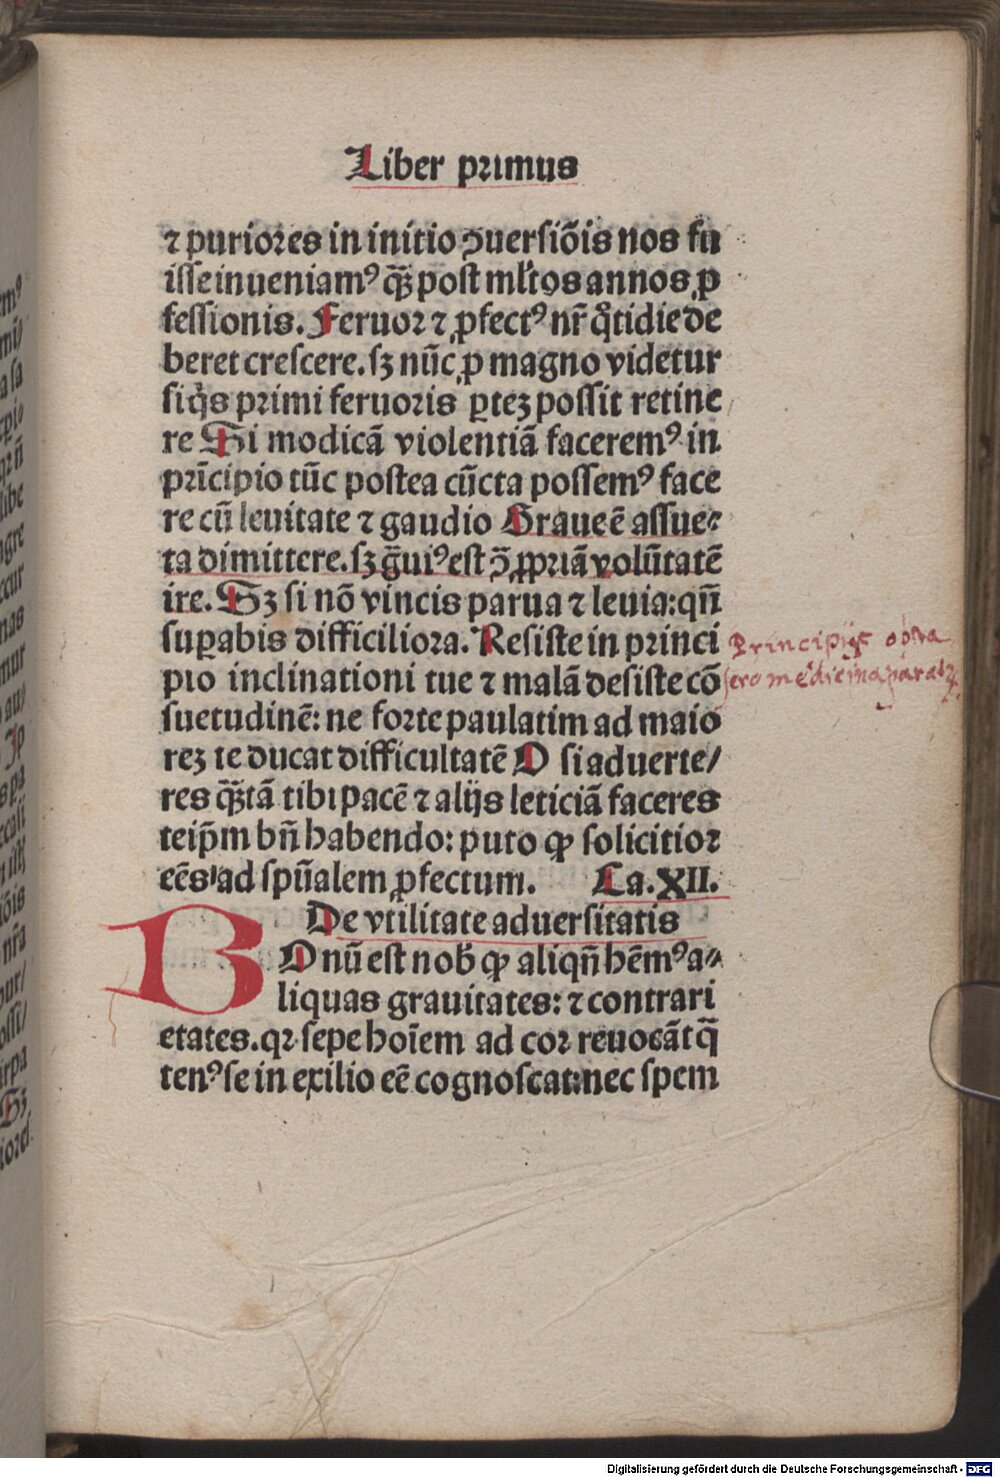 Liber primus
⁊ puriores in initio ꝯuersiõis nos fu
isse inueniamꝰ q̃ꝫ post ml'tos annos ꝓ
fessionis. Feruor ⁊ ꝓfectꝰ nr̃ q̊tidie de
beret crescere. sꝫ nũc ꝓ magno videtur
siq̇s primi feruoris ꝑteꝫ possit retine
re Si modicã violentiã faceremꝰ in
prĩcipio tũc postea cũcta possemꝰ face
re cũ leuitate ⁊ gaudio Graue ẽ assue⸗
ta dimittere. sꝫ g̃uiꝰ est ꝯ̃ ꝓpriã volũtatẽ
ire. Sꝫ si nõ vincis parua ⁊ leuia: qñ
suꝑabis difficiliora. Resiste in princi
pio inclinationi tue ⁊ malã desiste cõ
suetudinẽ: ne forte paulatim ad maio
reꝫ te ducat difficultatẽ O si aduerte/
res q̃ꝫtã tibi pacẽ ⁊ alijs leticiã faceres
teip̃m bñ habendo: puto ꝙ solicitior
eẽs ad spũalem ꝓfectum. Ca. XII.
De vtilitate aduersitatis
B Onũ est nob̃ ꝙ aliqñ hẽmꝰ a⸗
liquas grauitates: ⁊ contrari
etates. qꝛ sepe hoĩem ad cor reuocãt q̃
tenꝰ se in exilio eẽ cognoscat: nec spem
Principijs obsta
sero medicina paratꝛ
Digitalisierung gefördert durch die Deutsche Forschungsgemeinschaft - DFG